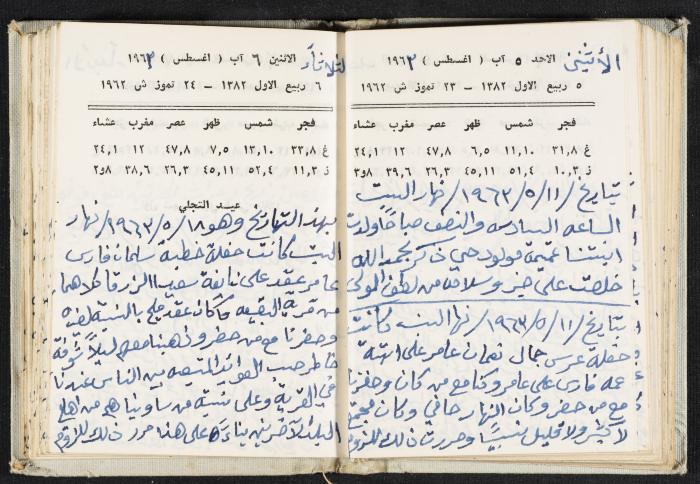 الأثنين
الاحد ٥ آب ( اغسطس ) ١٩٦٣
٥ ربيع الاول ١٣٨٢ – ٢٣ تموز ش ١٩٦٢
فجر شمس ظهر عصر مغرب عشاء
غ ٣١,٨ ١١,١٠ ٦,٥ ٤٧,٨ ١٢ ٢٤,١
ز ١٠,٣ ٥١,٤ ٤٥,١١ ٢٦,٣ ٣٩,٦ ٣و٨
بتاريخ /١١/ ٥/ ١٩٦٣/ نهار السبت
الساعه السادسه والنصف صباحًا ولدت
ابنتنا مولود حي ذكر بحمد الله
خلصت على خير وسلامة من لطف المولى
بتاريخ /١١/ ٥/ ١٩٦٣/ نهار السبت كانت
حفلة عرس جمال نعمان عامر على ابنة
عمه فارس علي عامر وكنا مع من كان وحضرنا
مع من حضر وكان النهار حافي وكان مجمع
لا كثير ولا قليل نسبيًا وحررت ذلك للزوم
الثلاثاء
الاثنين ٦ آب ( اغسطس ) ١٩٦٣
٦ ربيع الاول ١٣٨٢ – ٢٤ تموز ش ١٩٦٢
فجر شمس ظهر عصر مغرب عشاء
غ ٣٣,٨ ١٣,١٠ ٧,٥ ٤٧,٨ ١٢ ٢٤,١
ز ١١,٣ ٥٢,٤ ٤٥,١١ ٢٦,٣ ٣٨,٦ ٢و٨
عيد التجلي
بهذا التاريخ وهو ١٨/ ٥/ ١٩٦٣/ نهار
السبت كانت حفلة خطبة سلمان فارس
عامر عقد على نايفة سعيد الزرقا كلاهما
من قرية البقيعه وكان عقد مليح بالنسبة لغيره
وحضرنا مع من حضر وذهبنا معهم ليلًا شوفة
خاطر حسب العوائد المتبعه بين الناس عندنا
في القرية وعلى نسبة من ساوينا هم من اهل
البلد الآخرين بناءً على هذا حرر ذلك للزوم